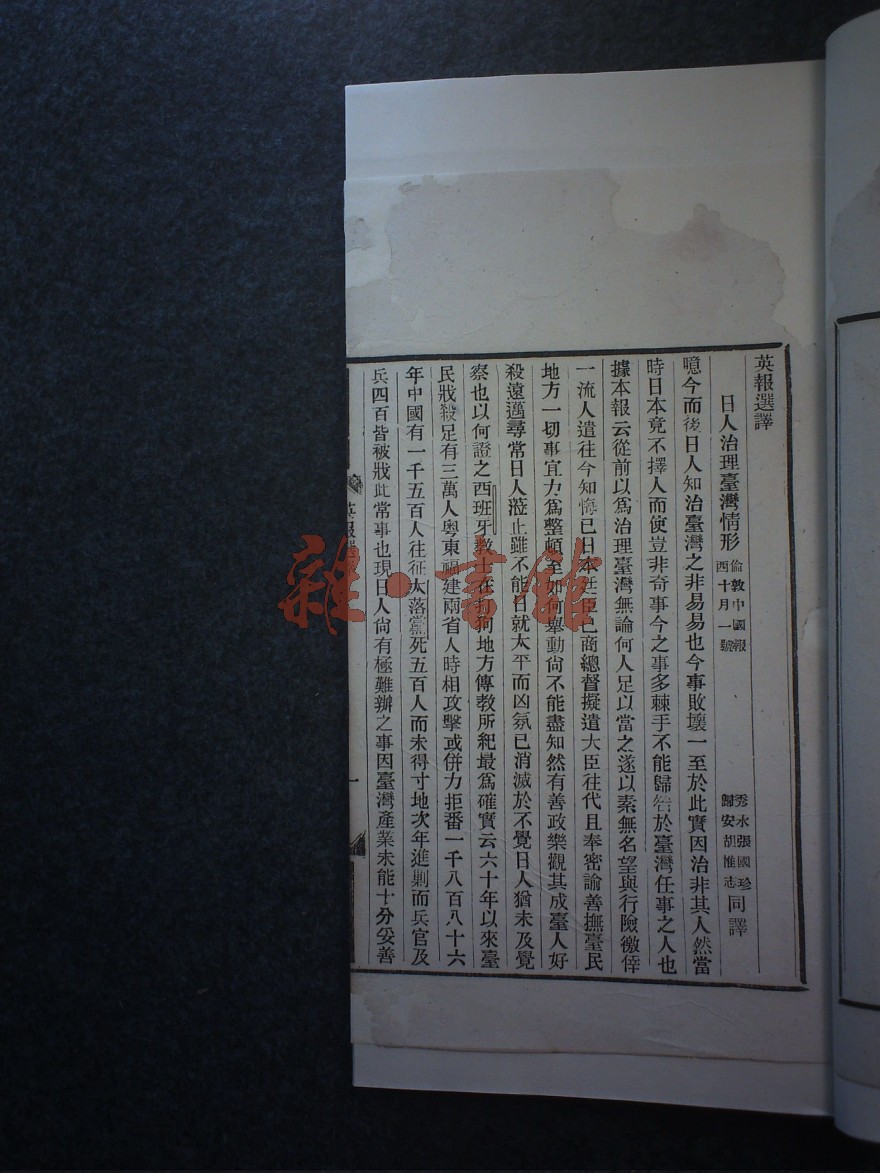 英報選譯
日人治理臺灣情形 倫敦中國報 西十月一號 秀水張國珍 歸安胡惟志 同譯
噫今而後日人知治臺灣之非易易也今事敗壞一至於此實因治非其人然當
時日本竟不擇人而使豈非奇事今之事多棘手不能歸咎於臺灣任事之人也
據本報云從前以爲治理臺灣無論何人足以當之遂以素無名望與行險徼倖
一流人遣往今知悔已日本廷臣已商總督擬遣大臣往代且奉密諭善撫臺民
地方一切事宜力爲整頓至如何舉動尙不能盡知然有善政樂觀其成臺人好
殺遠邁尋常日人蒞止雖不能日就太平而凶氛已消滅於不覺日人猶未及覺
察也以何證之西班牙教士在打狗地方傳教所紀最爲確實云六十年以來臺
民戕殺足有三萬人粵東福建兩省人時相攻擊或併力拒番一千八百八十六
年中國有一千五百人往征大落黨死五百人而未得寸地次年進剿而兵官及
兵四百皆被戕此常事也現日人尙有極難辦之事因臺灣產業未能十分妥善
英報選
一
雜·書館